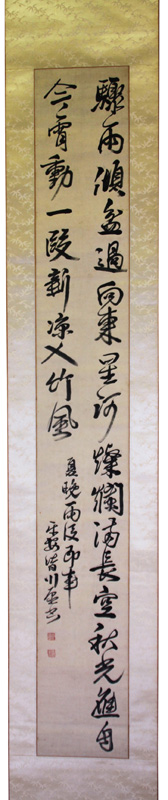 驟雨傾盆過向東星河燦爛滿長空秋光應自
今宵動一段新凉入竹風
夏晚雨後即事
皆川愿